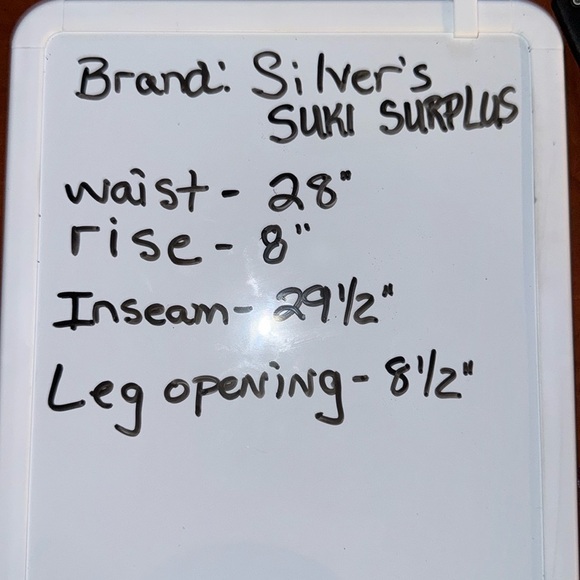 Brand: Silver's
SUKI SURPLUS
waist - 28"
rise - 8"
Inseam - 29 1/2"
Leg opening - 8 1/2"